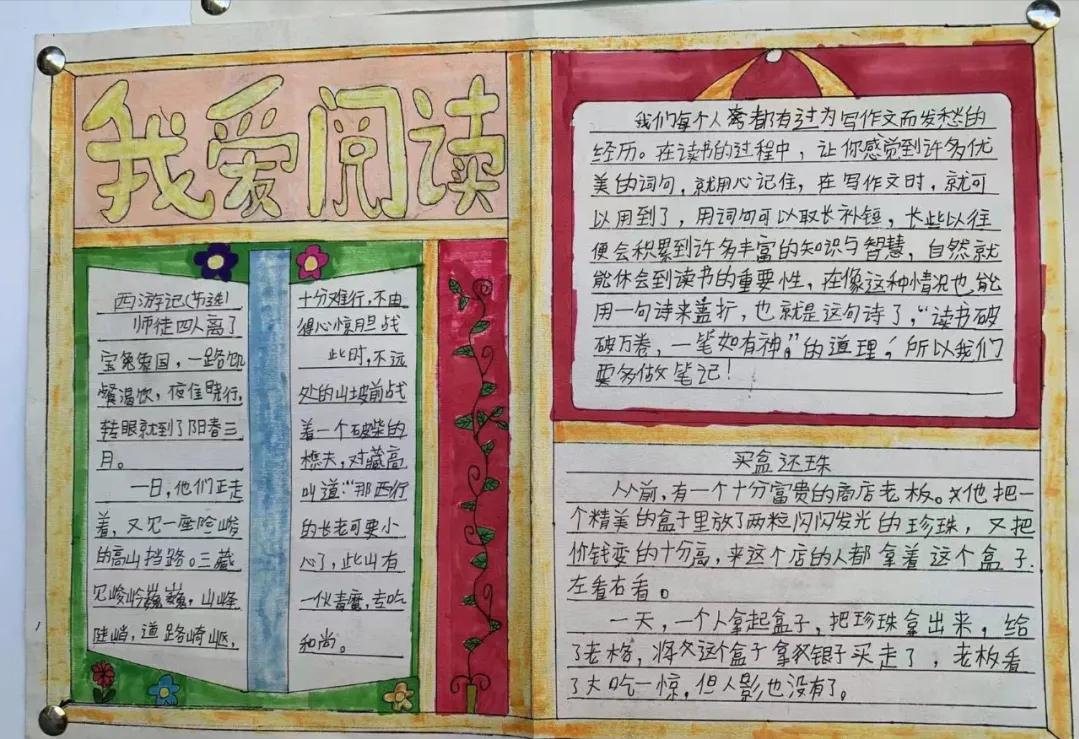 我爱阅读
西游记(节选)
师徒四人离了
宝兔象国，一路饥
餐渴饮，夜住晓行，
转眼就到了阳春三
月。
一日，他们正走
着，又见一座险峻
的高山挡路。三藏
见峻岭巍巍，山峰
陡峭，道路崎岖，
十分难行，不由
得心惊胆战
此时，不远
处的山坡前战
着一个破柴的
樵夫，对藏高
叫道：“那西行
的长老可要小
心了，此山有
一伙毒魔，专吃
和尚。
我们每个人都有过为写作文而发愁的
经历。在读书的过程中，让你感觉到许多优
美的词句，就用心记住，在写作文时，就可
以用到了，用词句可以取长补短，长些以往
便会积累到许多丰富的知识与智慧，自然就
能体会到读书的重要性，在像这种情况也能
用一句诗来盖折，也就是这句诗了，“读书破
破万卷，一笔如有神”。的道理，所以我们
要多做笔记！
买盒还珠
从前，有一个十分富贵的商店老板。他把一
个精美的盒子里放了两粒闪闪发光的珍珠，又把
价钱变的十分高，来这个店的人都拿着这个盒子
左看右看。
一天，一个人拿起盒子，把珍珠拿出来，给
了老格，将这个盒子拿银子买走了，老板看
了大吃一惊，但人影也没有了。